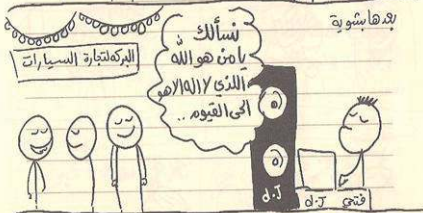 بعدها بشوية
البركه لتجارة السيارات
نسألك
يا من هو الله
اللذي لا اله الا هو
الحى القيوم ..
d.J
d.J
فتحي